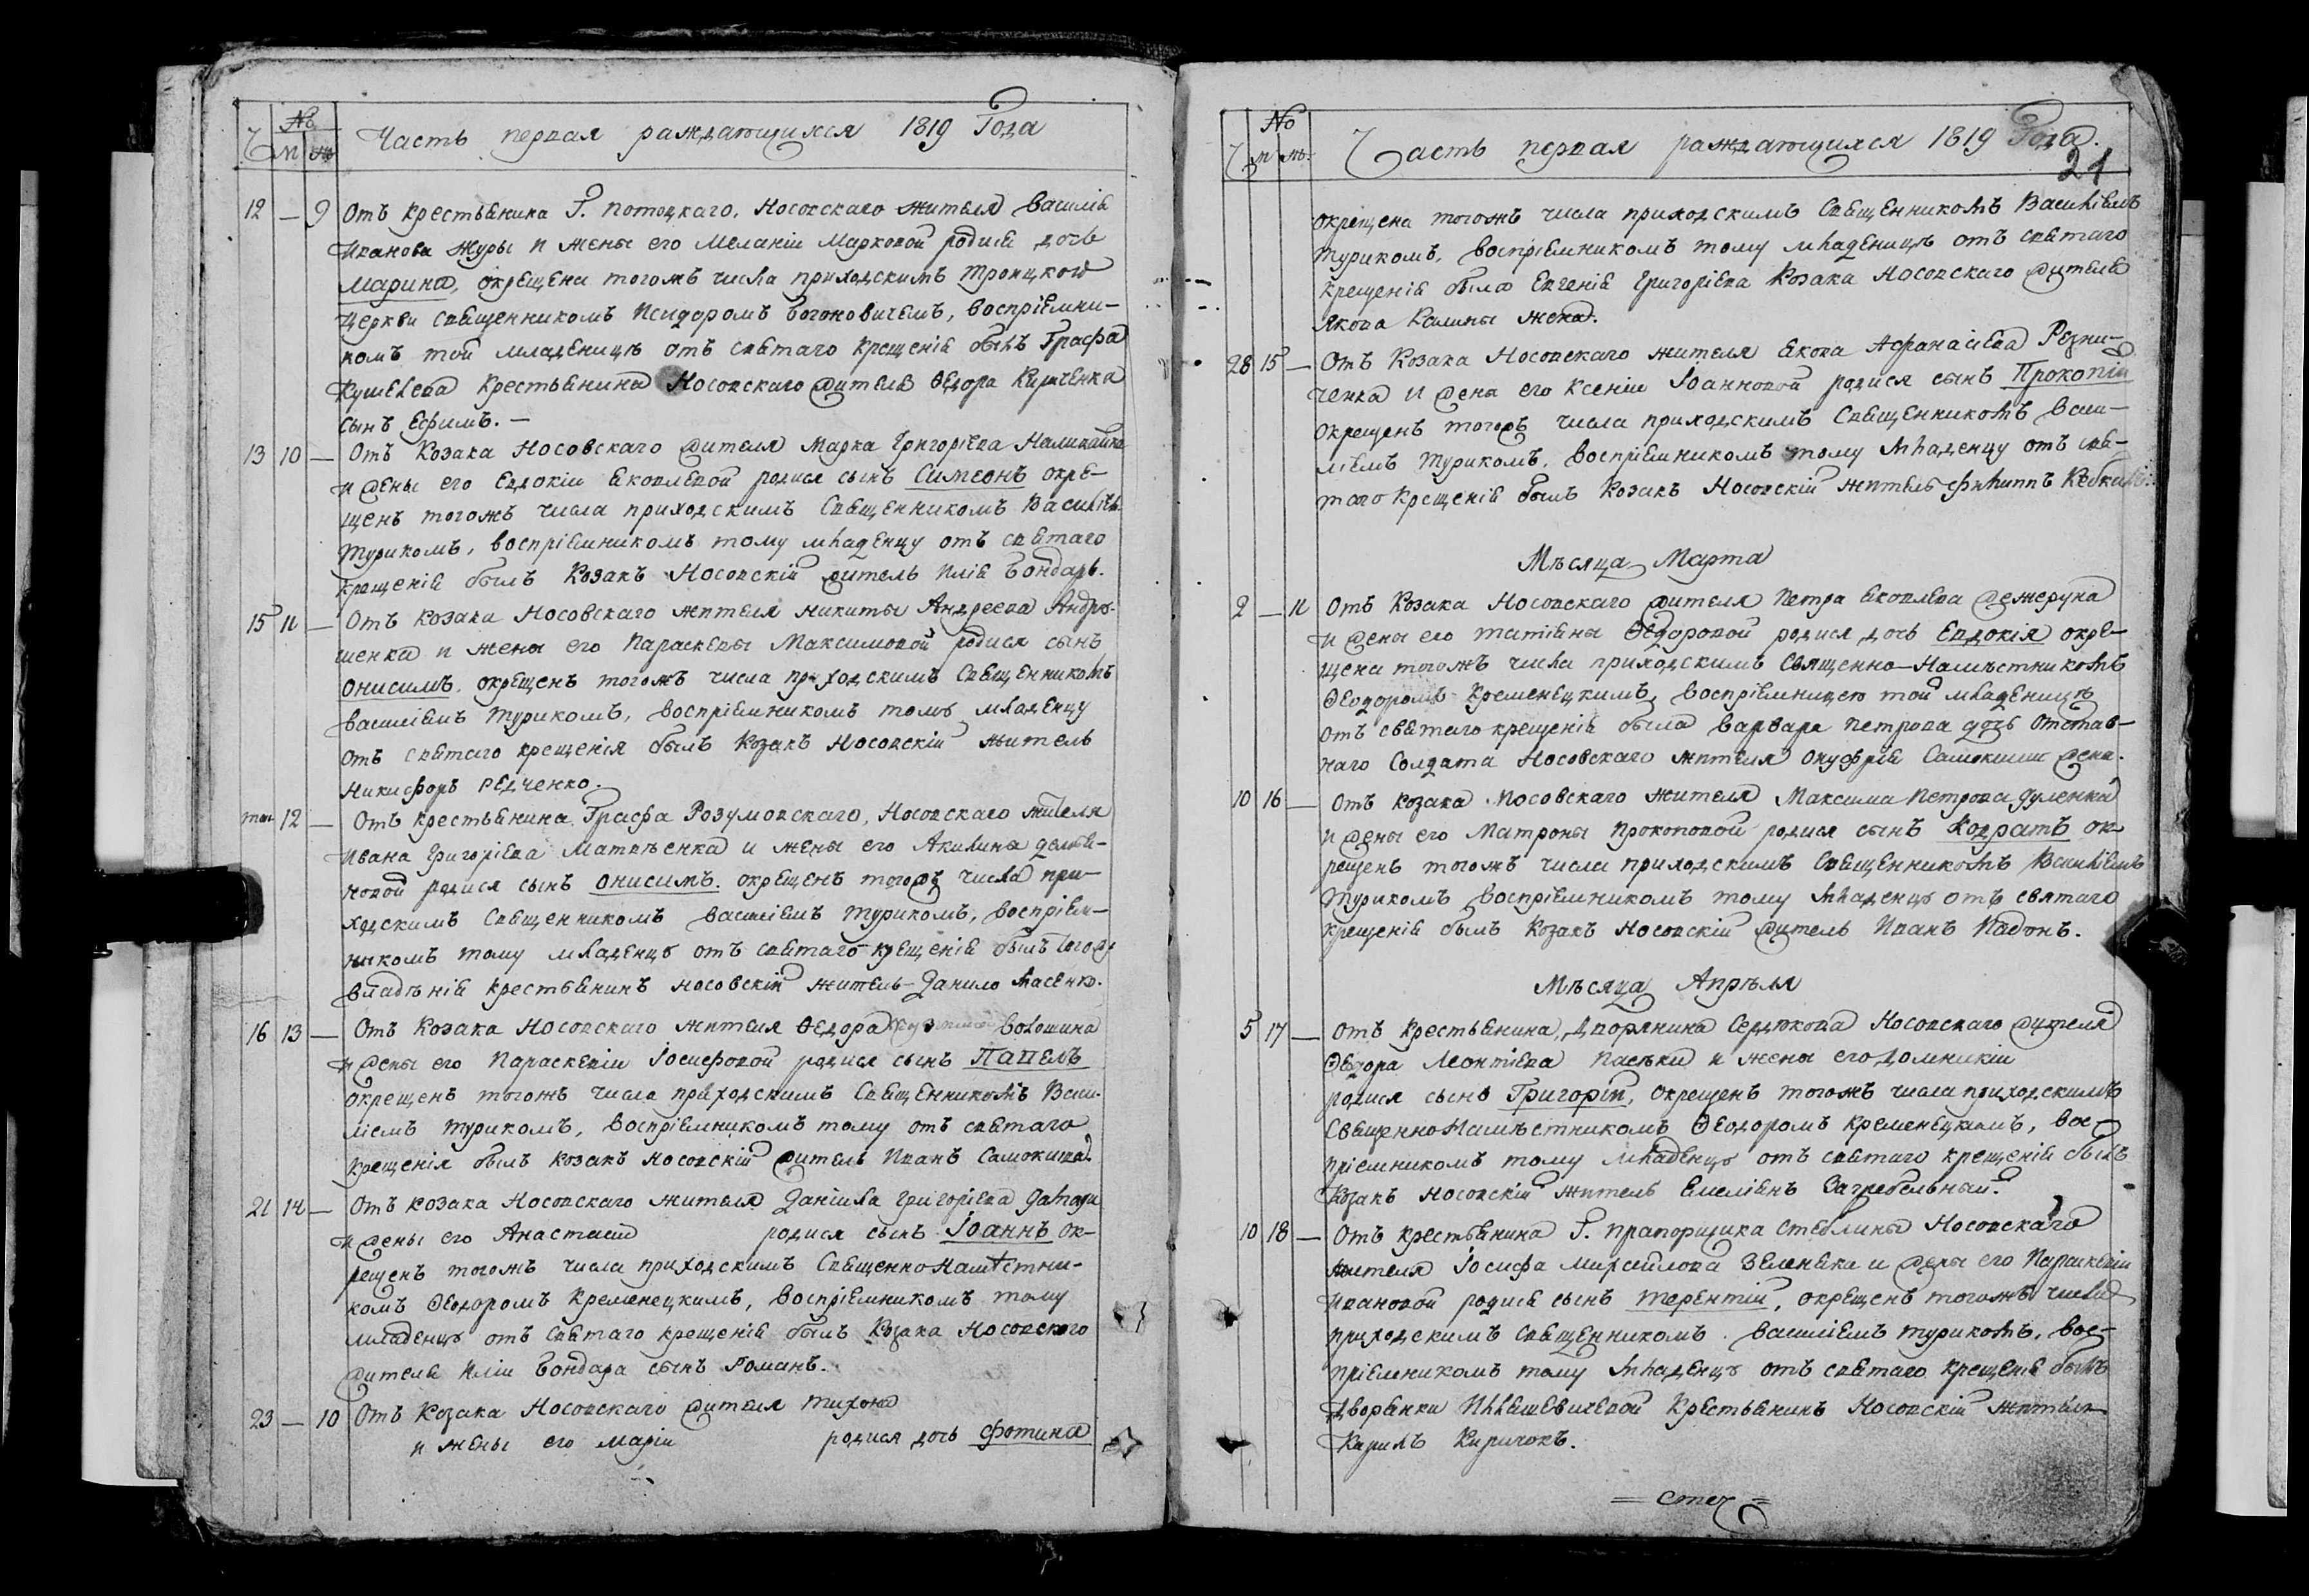 №
Ч М Ж Часть первая раждающихся 1819 Года
12 — 9 Отъ крестьянина Г. Потоцкаго, Носовского жителя Василія
Иванова Журы и жены его Меланіи Марковой родися дочь
Марина, окрещена тогожъ числа приходскимъ Троицкой
церкви священникомъ Исидоромъ воспріемни-
комъ той младеницѣ отъ святаго крещенія былъ Графа
Кушелева крестьянина Носовскаго жителя Ѳедора Кириченка
сынъ Ефимъ. —
13 10 — Отъ Козака Носовскаго жителя Марка Григоріева Наливайка
и жены его Евдокіи Яковлевой родися сынъ Симеонъ окре-
щенъ тогожъ числа приходскимъ Священникомъ Василіемъ
Туриком, воспріемникомъ тому младенцу отъ святаго
крещенія былъ Козакъ Носовскій житель Илія Бондарь.
15 11 — Отъ Козака Носовскаго жителя Никиты Андреева Андрю-
щенка и жены его Параскевы Максимовой родися сынъ
Онисимъ. окрещенъ тогожъ числа приходскимъ Священникомъ
Василіемъ Туриком, воспріемникомъ тому младенцу
отъ святаго крещенія былъ Козакъ Носовскій житель
Никифоръ Редченко.
12 — Отъ крестьянина Графа Розумовскаго, Носовскаго жителя
Ивана Григоріева Матвѣенка и жены его Акилины Демья-
новой родися сынъ Онисимъ. окрещенъ тогожъ числа при-
ходскимъ Священникомъ Василіемъ Туриком, воспріем-
никомъ тому младенцу отъ святаго крещенія былъ тогожъ
владѣнія крестьянинъ Носовскій житель Данило
16 13 — Отъ Козака Носовскаго жителя Ѳедора Волошина
и жены его Параскевіи Іосифовой родися сынъ Павелъ
окрещенъ тогожъ числа приходскимъ Священникомъ Васи-
ліемъ Туриком, воспріемникомъ тому отъ святаго
крещенія былъ Козакъ Носовскій житель Иванъ Самокиша.
21 14 — Отъ Козака Носовскаго жителя Даніила Григоріева
и жены его Анастасіи родися сынъ Іоаннъ ок-
рещенъ тогожъ числа приходскимъ Священнонамѣстни-
комъ Ѳеодоромъ Кременецкимъ, воспріемникомъ тому
младенцу отъ святаго крещенія былъ Козака Носовскаго
жителя Иліи Бондара сынъ Романъ.
23 — 10 Отъ Козака Носовскаго жителя Тихона
и жены его Маріи родися дочь Фотина
№
Ч М Ж Часть первая раждающихся 1819 Года.
21
окрещена тогожъ числа приходскимъ Священникомъ Василіемъ
Туриком, воспріемникомъ тому младеницѣ отъ святаго
крещенія была Евгенія Григоріева Козака Носовскаго жителя
Якова Калины жена.
28 15 — Отъ Козака Носовскаго жителя Якова Афанасіева Резни-
ченка и жены его Ксеніи Іоанновой родися сынъ Прокопій
окрещенъ тогожъ числа приходскимъ Священникомъ Васи-
ліемъ Туриком, воспріемникомъ тому младенцу отъ свя-
таго крещенія былъ Козакъ Носовскій житель Филиппъ
Мѣсяца Марта
2 — 11 Отъ Козака Носовскаго жителя Петра Яковлева Дежеруна
и жены его Татіаны Ѳедоровой родися дочь Евдокія окре-
щена тогожъ числа приходскимъ Священно-Намѣстникомъ
Ѳеодоромъ Кременецкимъ, воспріемницею той младеницѣ
отъ святаго крещенія была Варвара Петрова дочь Отстав-
наго Солдата Носовскаго жителя Онуфрія Самокиши жена.
10 16 — Отъ Козака Носовскаго жителя Максима Петрова Дуленка
и жены его Матроны Прокоповой родися сынъ Кодратъ ок-
рещенъ тогожъ числа приходскимъ Священникомъ Василіемъ
Туриком воспріемникомъ тому младенцу отъ святаго
крещенія былъ Козакъ Носовскій житель Иванъ Падонъ.
Мѣсяца Апрѣля
5 17 — Отъ крестьянина, Дворянина Сердюкова Носовскаго жителя
Ѳедора Леонтіева Пасѣки и жены его Домникіи
родися сынъ Григорій, окрещенъ тогожъ числа приходскимъ
СвященноНамѣстникомъ Ѳеодоромъ Кременецкимъ, вос-
пріемникомъ тому младенцу отъ святаго крещенія былъ
Козакъ Носовскій житель Емеліянъ Загребельный.
10 18 — Отъ крестьянина Г. Прапорщика Стеблины Носовскаго
жителя Іосифа Михайлова Зеленьки и жены его Параскевіи
Ивановой родися сынъ Терентій, окрещенъ тогожъ числа
приходскимъ Священникомъ Василіемъ Туриком, вос-
пріемникомъ тому младенцу отъ святаго крещенія былъ
Дворянки Илляшевичевой Крестьянинъ Носовскій житель
Кирилъ Киричокъ.